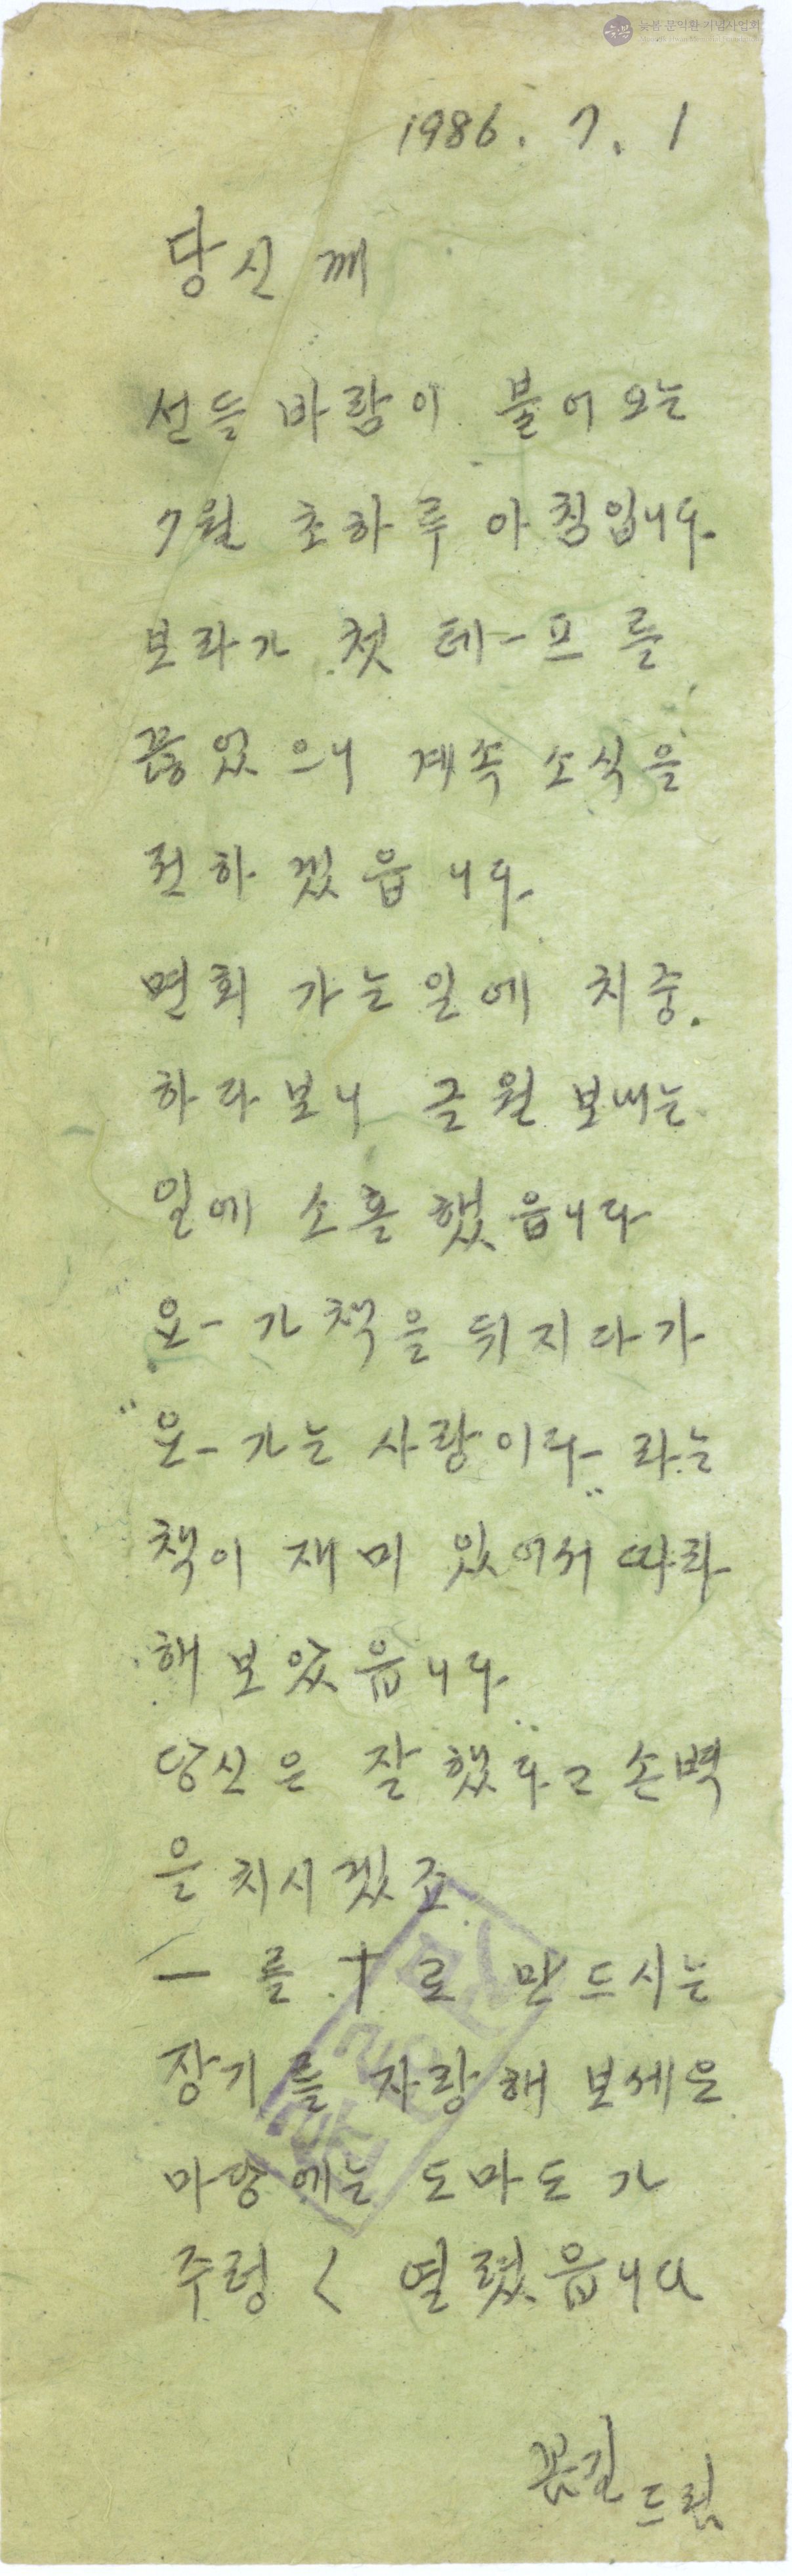 늦봄 문익환 기념사업회
1986. 7. 1
당신께
선들 바람이 불어오는
7월 초하루 아침입니다.
보라가 첫 테-프를
끊었으니 계속 소식을
전하겠읍니다.
면회 가는일에 치중.
하다보니 글월 보내는
일에 소홀했읍니다
요-가 책을 뒤지다가
"요-가는 사랑이다" 라는
책이 재미 있어서 따라
해 보았읍니다.
당신은 잘했다고 손벽
을 치시겠죠
ㅡ를 十로 만드시는
장기를 자랑해 보세요
마당에는 도마도가
주렁 〱 열렸읍니다
봄길 드림